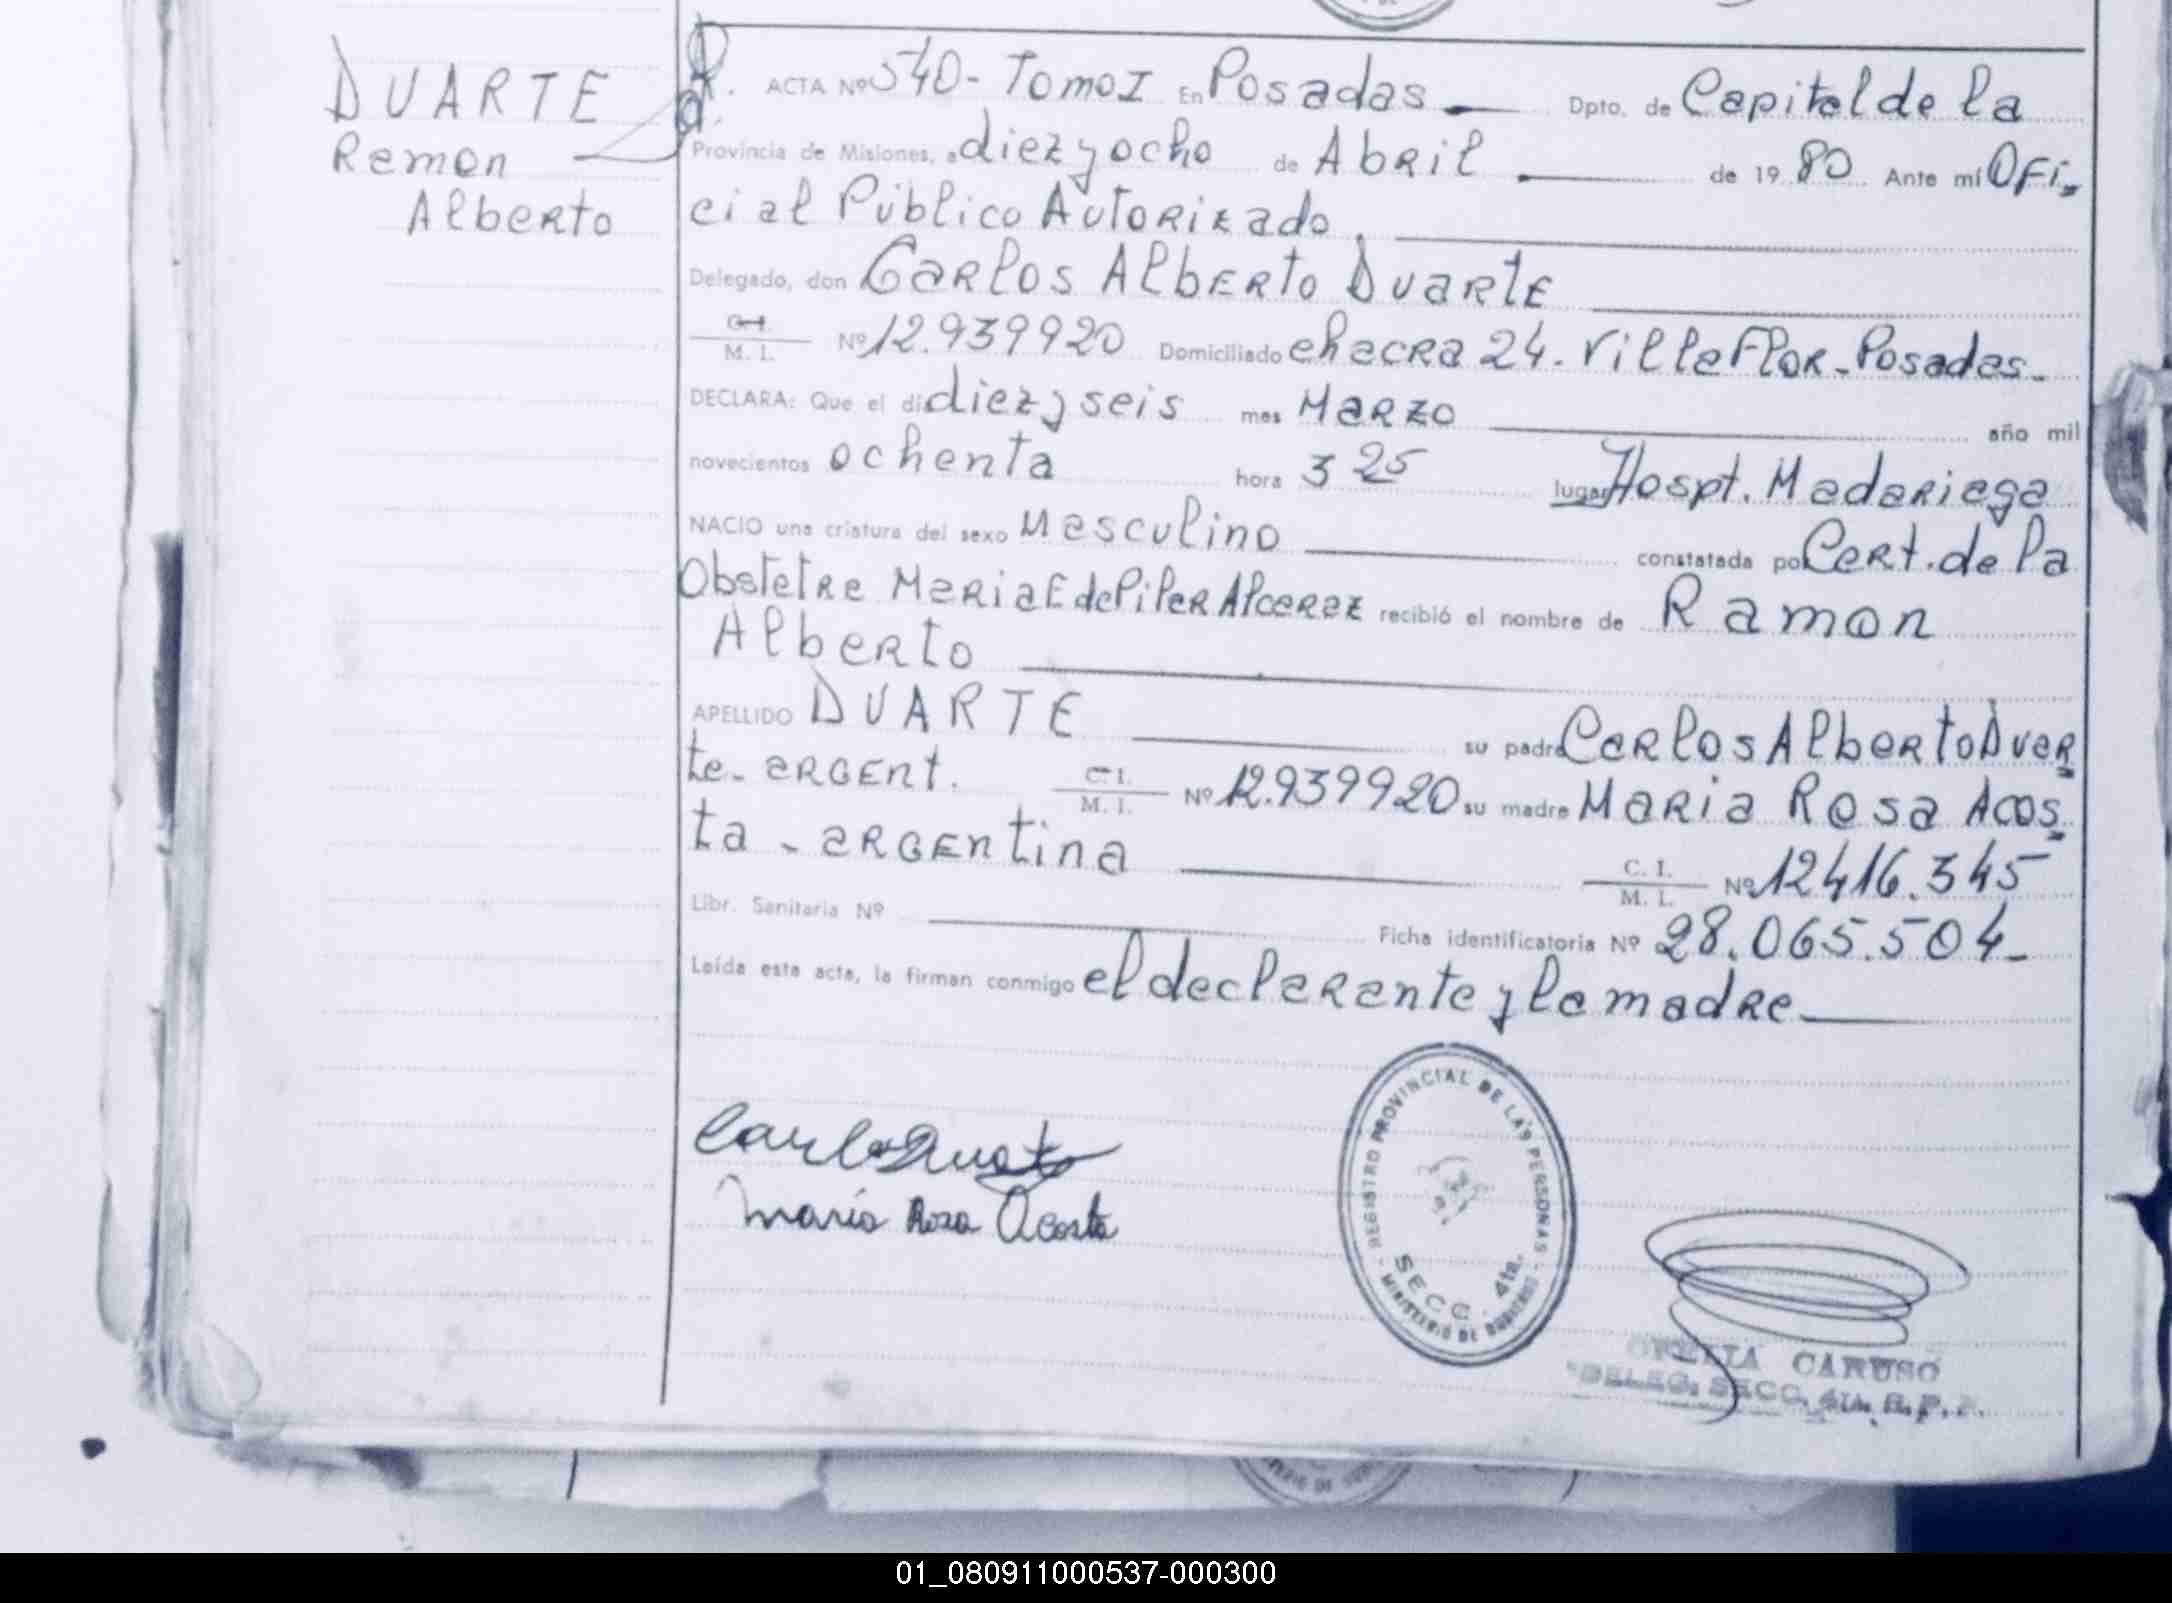 DUARTE
Ramon
Alberto
ACTA Nº 540- Tomo I En Posadas Dpto. de Capital de la
Provincia de Misiones, a diez y ocho de Abril de 1980 Ante mí Ofi-
cial Público Autorizado.
Delegado, don Carlos Alberto Duarte
C. I. M. I. Nº 12.939920 Domiciliado chacra 24. Villa Flor - Posadas-
DECLARA: Que el día diez y seis mes Marzo año mil
novecientos ochenta hora 3 25 lugar Hospt. Madariaga
NACIO una criatura del sexo Masculino constatada por Cert. de la
Obstetra Maria E de Piper Alcaraz recibió el nombre de Ramon
Alberto
APELLIDO DUARTE su padre Carlos Alberto Duar
te- argent. C. I. M. I. Nº 12.939920 su madre Maria Rosa Acos
ta - argentina C. I. M. I. Nº 12416.345
Libr. Sanitaria Nº Ficha identificatoria Nº 28.065.504-
Leída esta acta, la firman conmigo el declarante y la madre
Carlos Duarte
María Rosa Acosta
REGISTRO PROVINCIAL DE LAS PERSONAS
SECC. 4ta.
MINISTERIO DE GOBIERNO
OFELIA CARUSO
DELEG. SECC. 4ta. R. P. P.
01_080911000537-000300